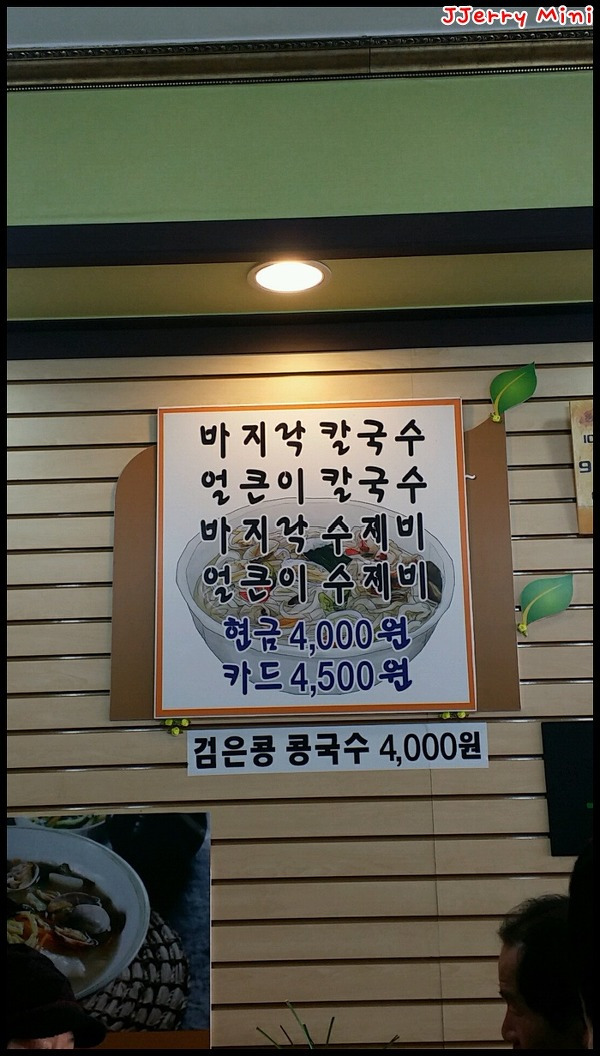 JJerry Mini
바지락 칼국수
얼큰이 칼국수
바지락 수제비
얼큰이 수제비
현금 4,000원
카드 4,500원
검은콩 콩국수 4,000원